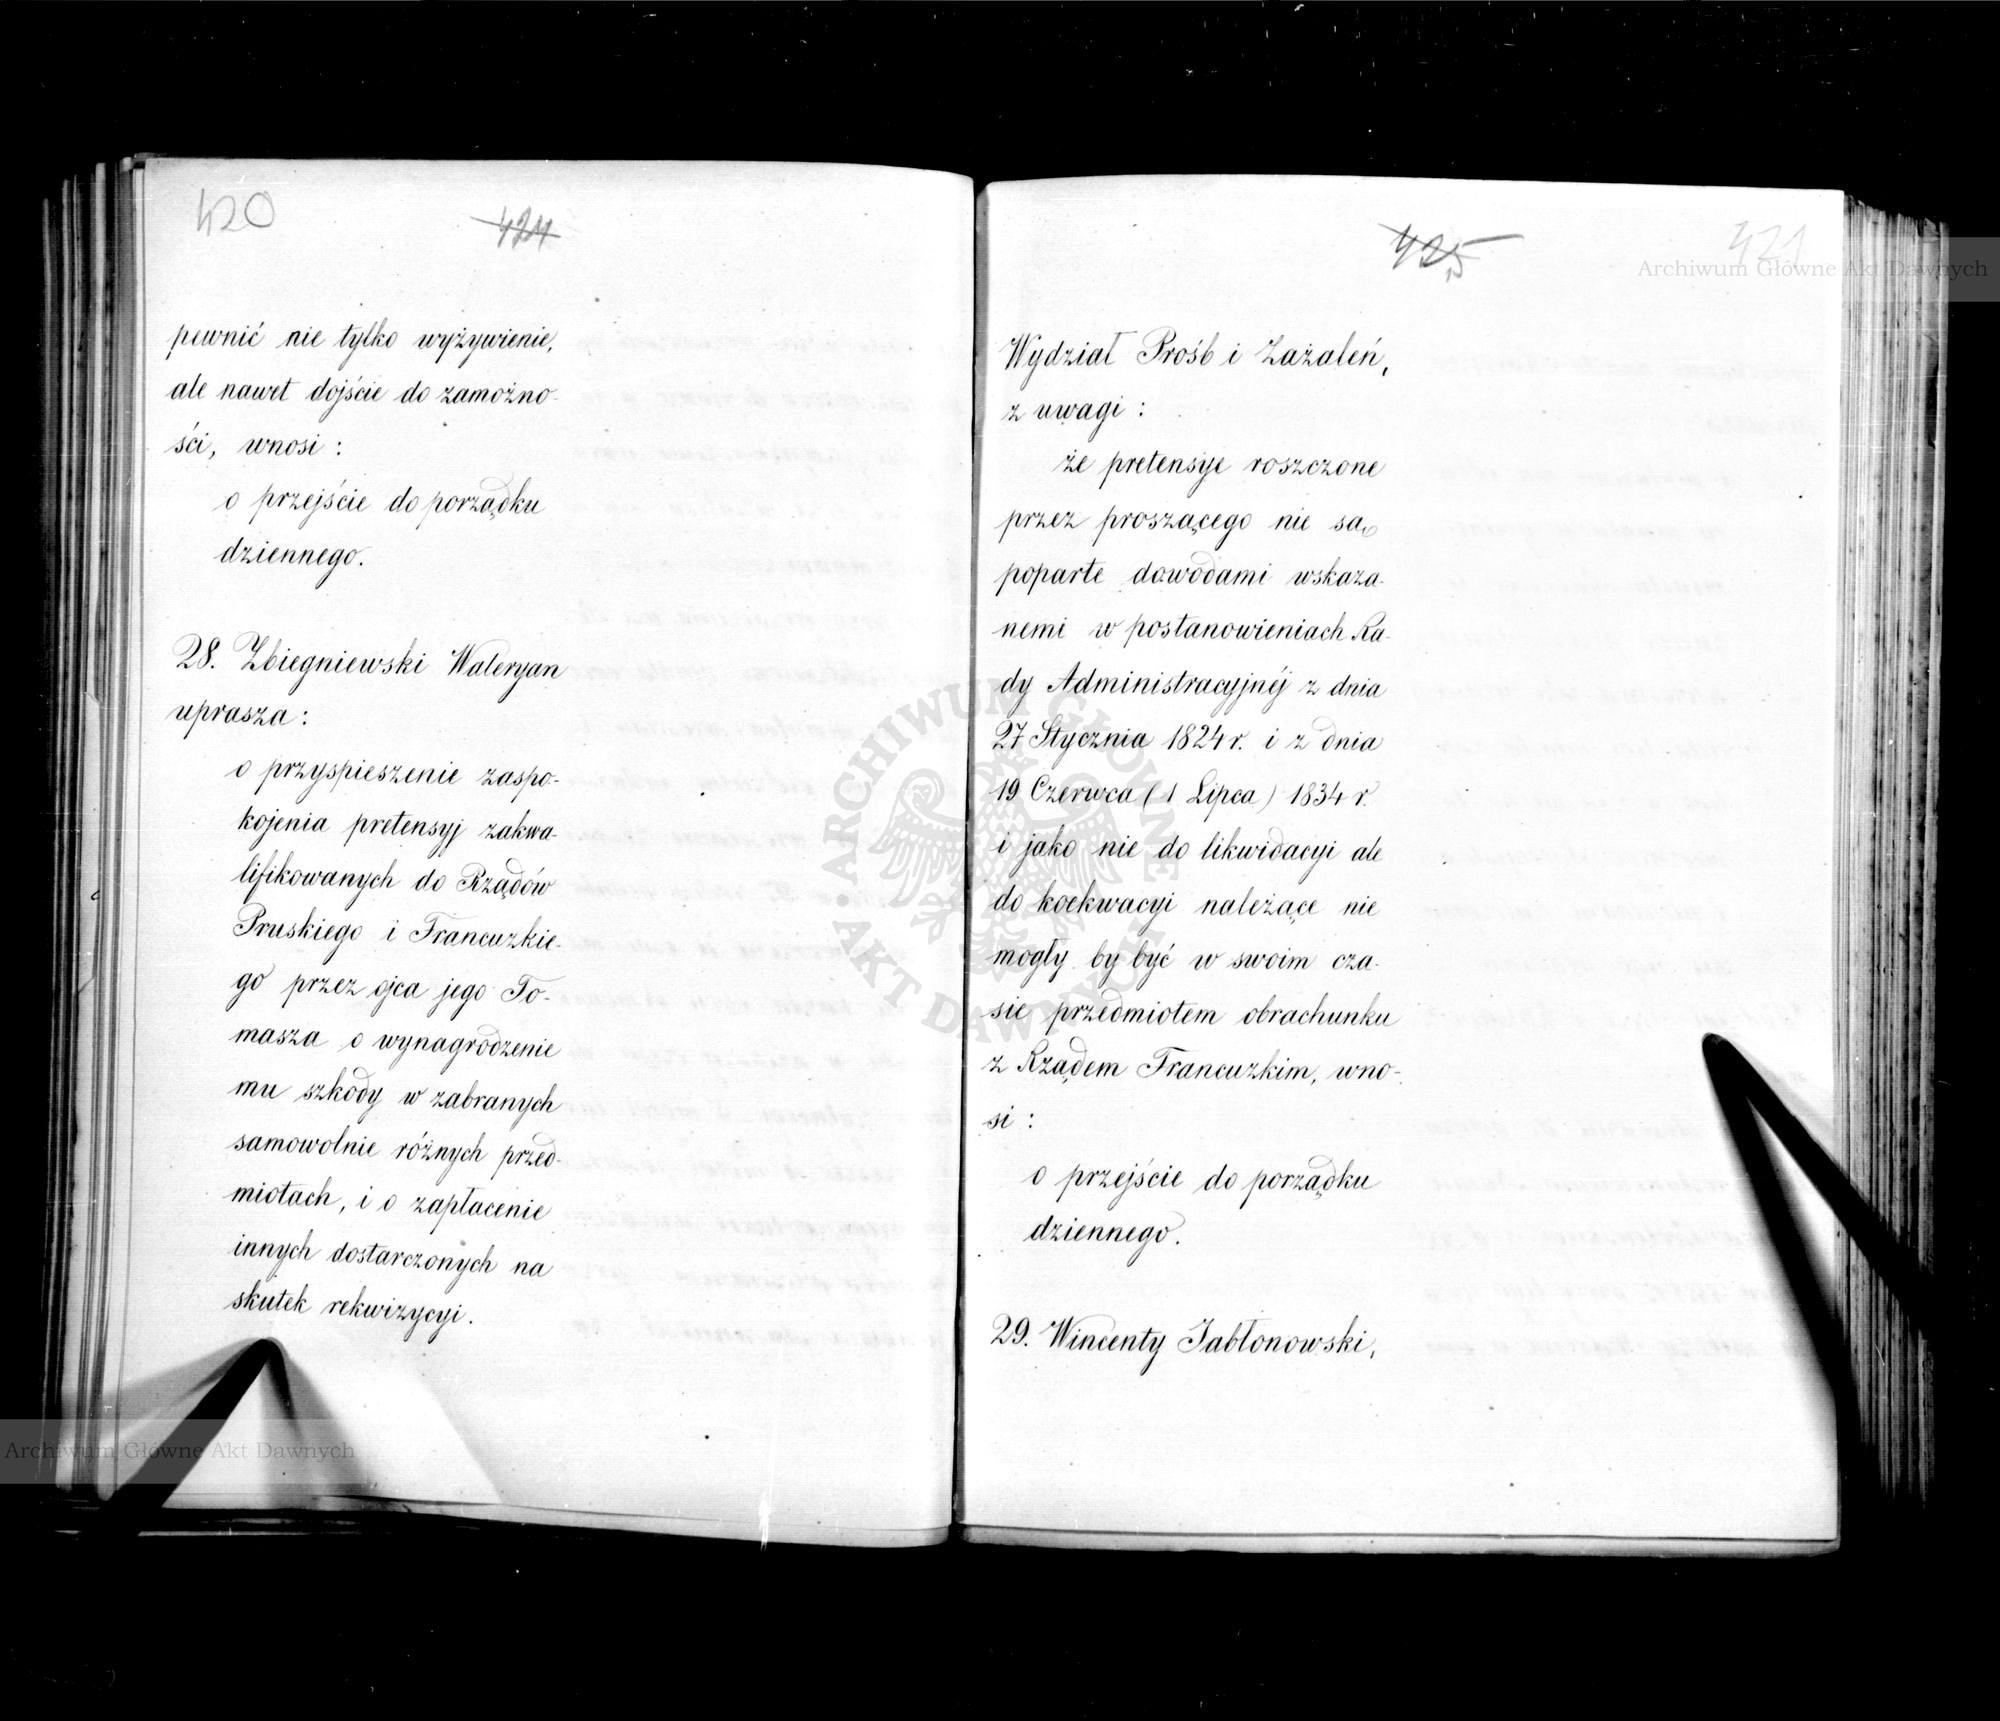 420
424
pewnić nie tylko wyżywienie,
ale nawet dojście do zamożno-
ści, wnosi:
o przejście do porządku
dziennego.
28. Zbiegniewski Waleryan
uprasza:
o przyspieszenie zaspo-
kojenia pretensyj zakwa-
lifikowanych do Rządów
Pruskiego i Francuzkie-
go przez ojca jego To-
masza o wynagrodzenie
mu szkody w zabranych
samowolnie różnych przed-
miotach, i o zapłacenie
innych dostarczonych na
skutek rekwizycyi.
425
421
Wydział Prośb i Zażaleń,
z uwagi:
że pretensye roszczone
przez proszącego nie są
poparte dowodami wskaza-
nemi w postanowieniach Ra-
dy Administracyjnéj z dnia
27 Stycznia 1824 r. i z dnia
19 Czerwca (1 Lipca) 1834 r.
i jako nie do likwidacyi ale
do koekwacyi należące nie
mogły by być w swoim cza-
sie przedmiotem obrachunku
z Rządem Francuzkim, wno-
si:
o przejście do porządku
dziennego.
29. Wincenty Jabłonowski,
Archiwum Główne Akt Dawnych
Archiwum Główne Akt Dawnych
ARCHIWUM GŁÓWNE
AKT DAWNYCH